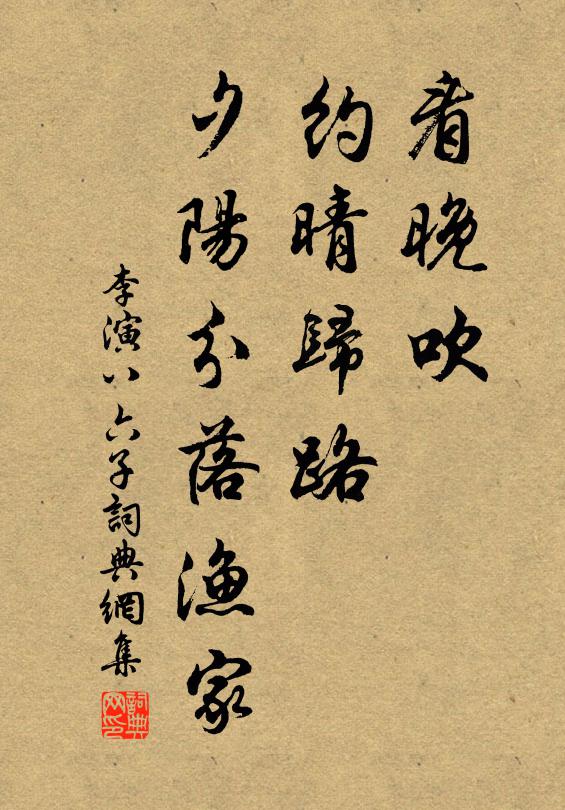 看晚吹
約晴歸路
夕陽分落漁家
李演八六子詞典網集
詞典网印